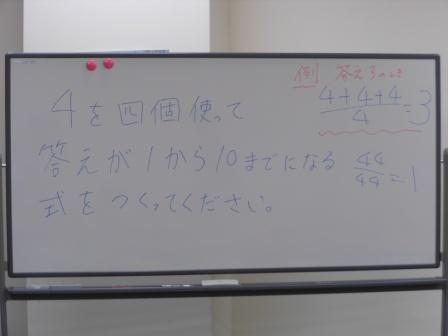 4を四個使って
答えが1から10までになる
式をつくってください。
例 答え3のとき
4+4+4/4=3
44/44=1